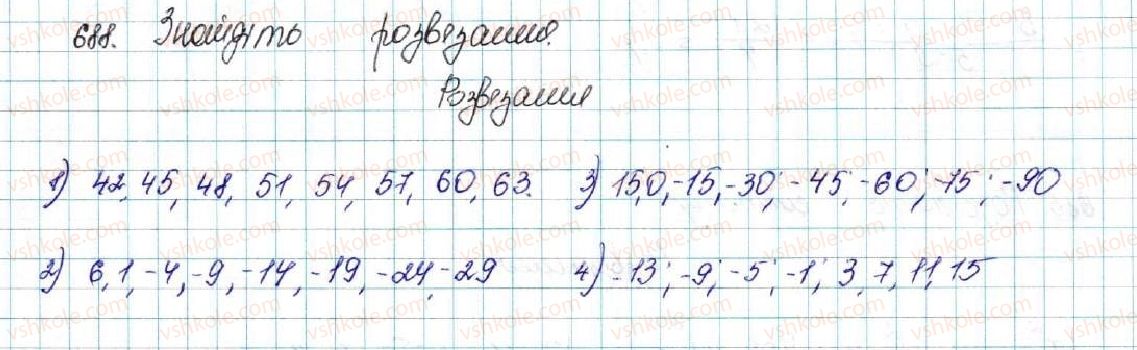 688. Знайдіть розвезання.
Розвезания
1) 42, 45, 48, 51, 54, 57, 60, 63. 3) 15,0,-15,-30; -45; -60; -75; -90
2) 6,1,-4,-9,-14,-19,-24,-29 4) -13; -9; -5; -1; 3, 7, 11, 15